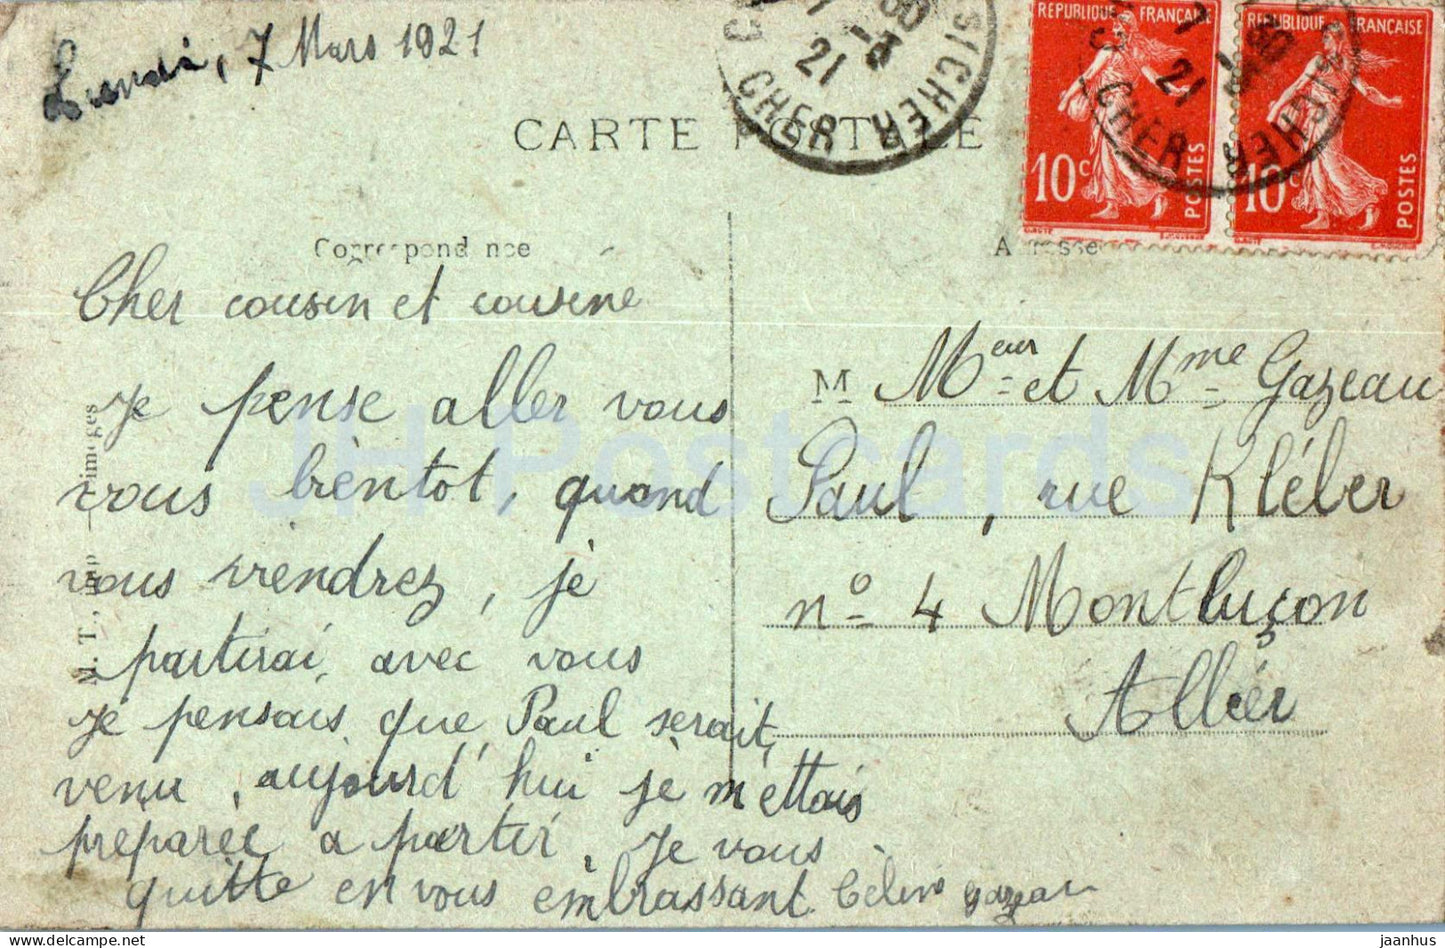 Lundi, 7 Mars 1921
CARTE POSTALE
CHER
21
CHER
21
RÉPUBLIQUE FRANÇAISE
10c
POSTES
RÉPUBLIQUE FRANÇAISE
10c
POSTES
Correspondance
Adresse
Cher cousin et cousine
Je pense aller vous
vous bientot, quand
vous viendrez, je
partirai avec vous
je pensais que Paul serait
venu, aujourd'hui je m'ettais
préparée a partir, je vous
quitte en vous embrassant
Gazeau
M Meur et Mme Gazeau
Paul, rue Kléber
no 4 Montluçon
Allier
M. T., Imp. Limoges
JH Postcards
jaanhus @ delcampe.net